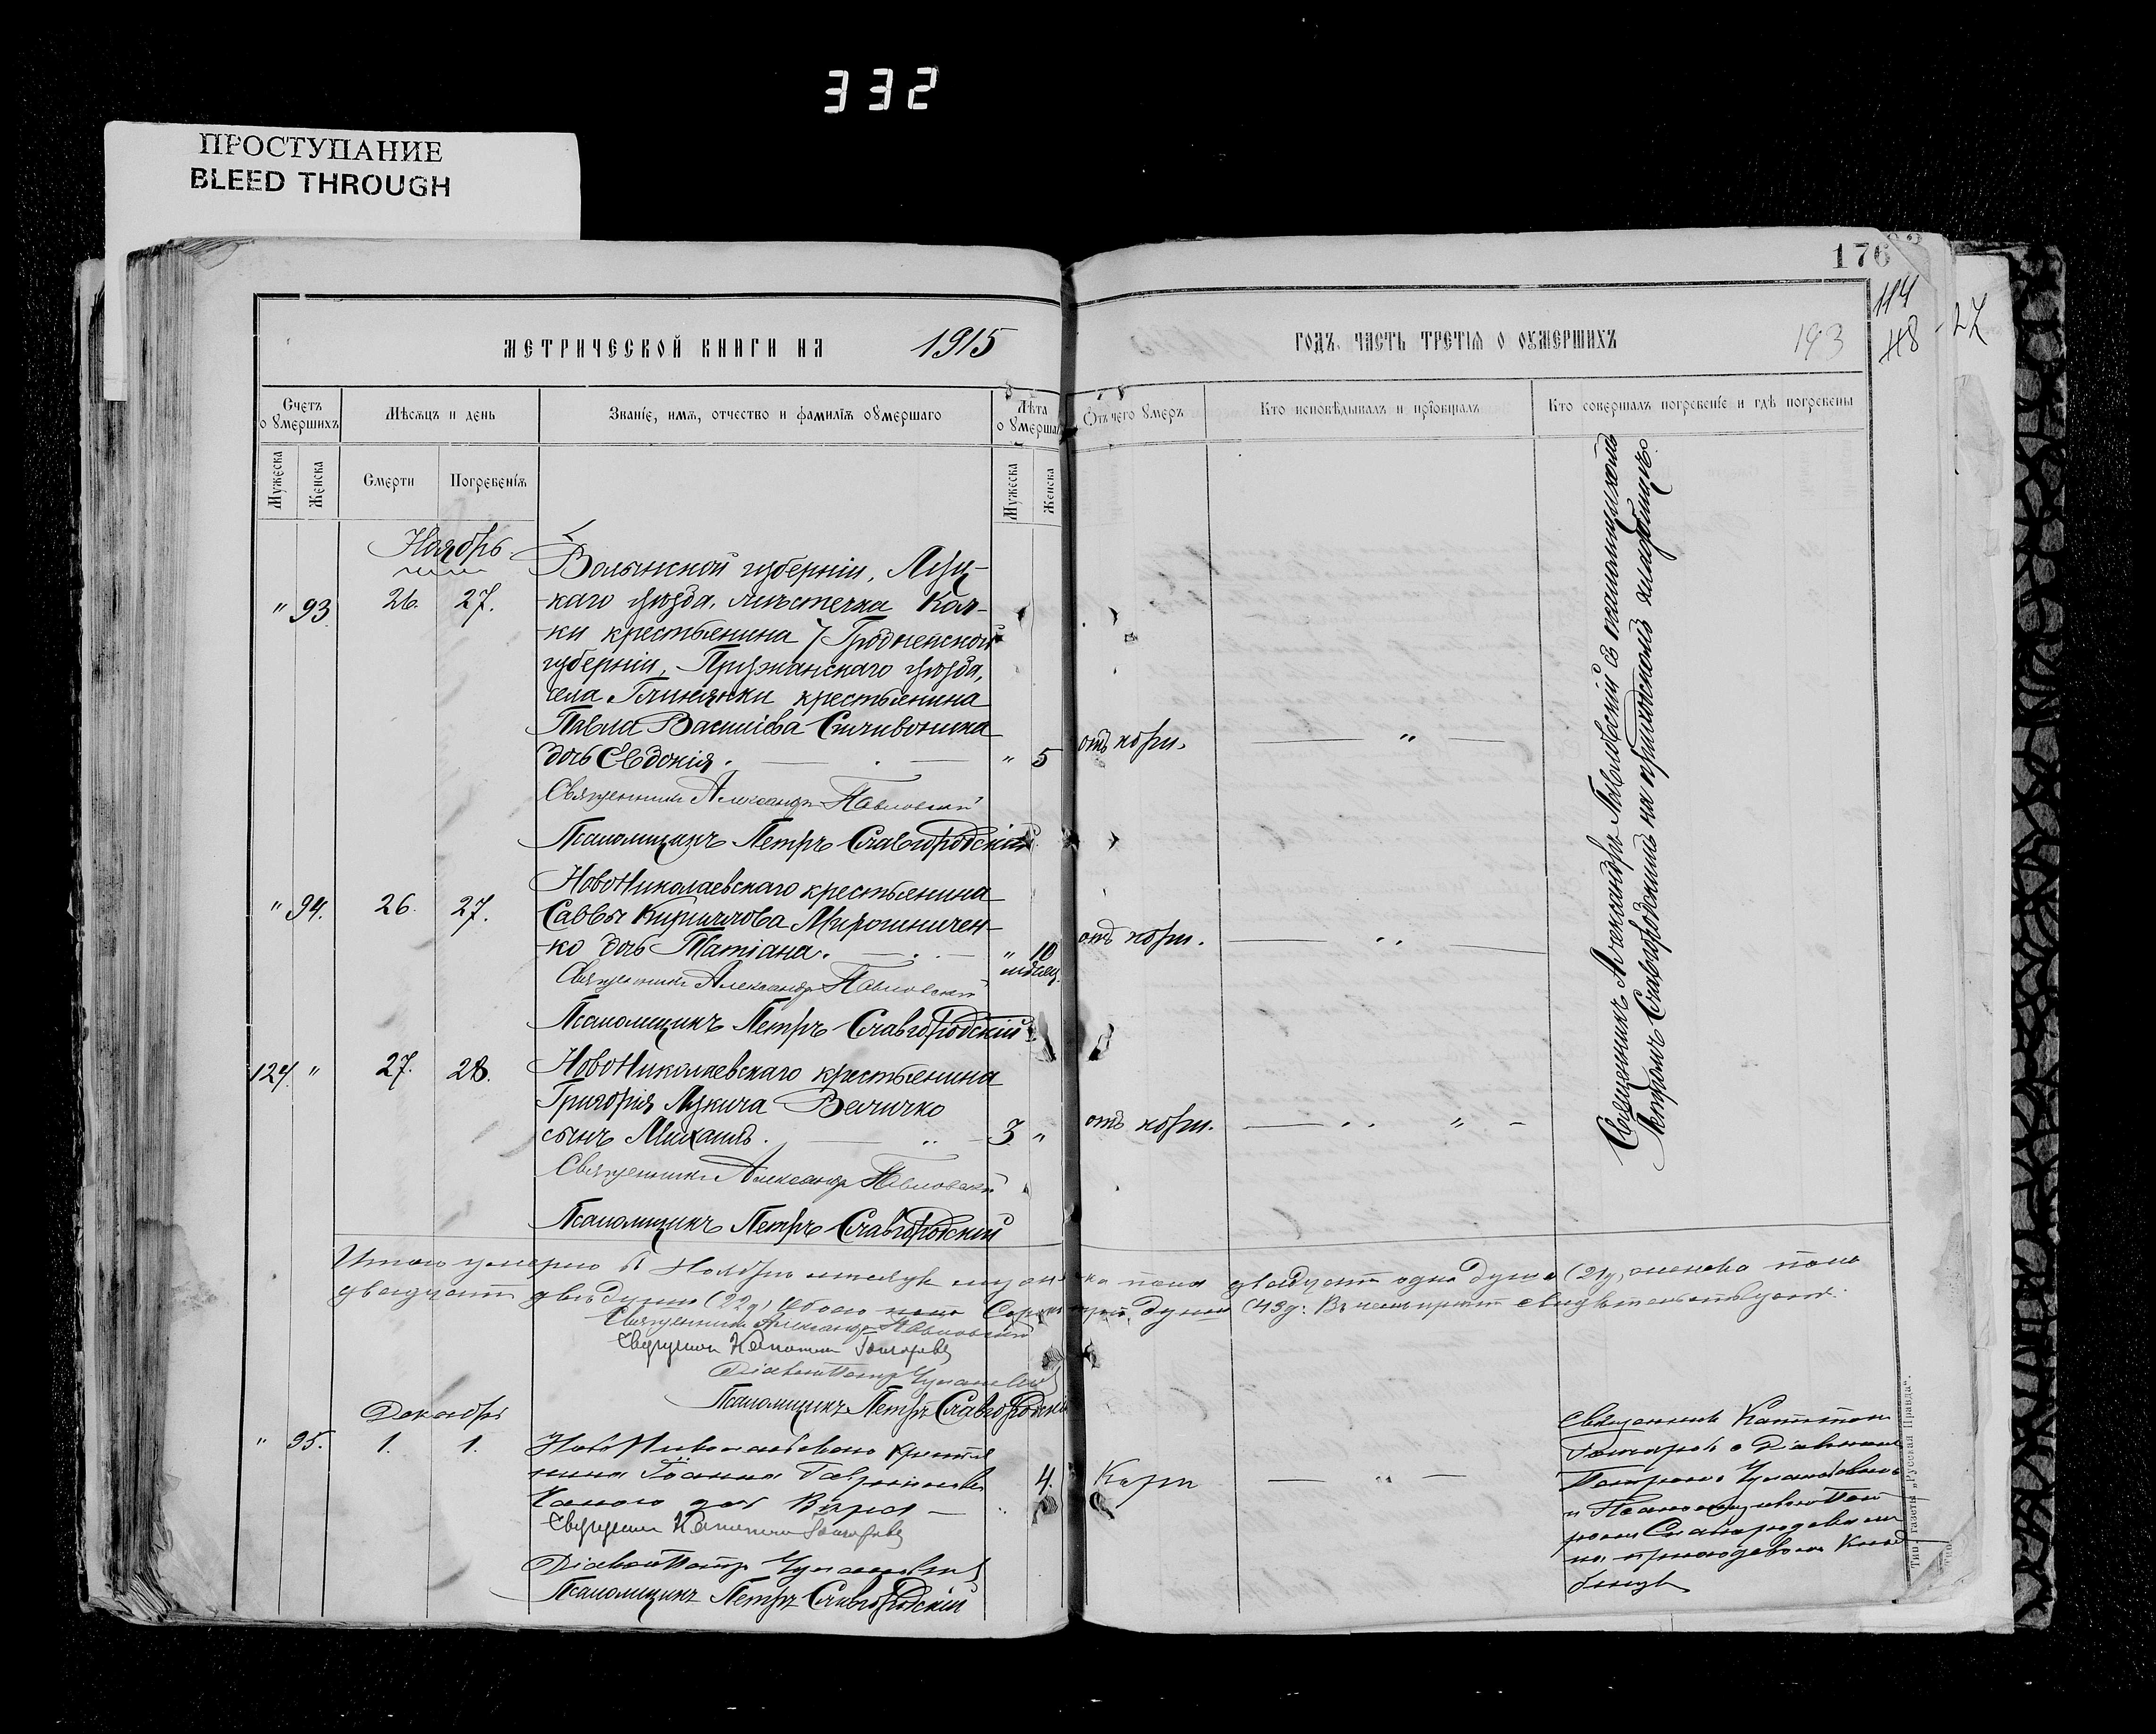 332
ПРОСТУПАНИЕ
BLEED THROUGH
176
114
118
27
193
МЕТРИЧЕСКОЙ КНИГИ НА 1915
ГОДЪ, ЧАСТЬ ТРЕТІЯ О ОУМЕРШИХЪ
Счетъ оумершихъ
Мѣсяцъ и день
Званіе, имя, отчество и фамилія оумершаго
Лѣта оумершаго
Отъ чего умеръ
Кто исповѣдывалъ и пріобщалъ
Кто совершалъ погребеніе и гдѣ погребены
Мужеска
Женска
Смерти
Погребенія
Мужеска
Женска
Ноябрь
" 93. 26. 27.
Волынской губерніи, Луц-
-каго уѣзда, мѣстечка Кол-
-ки крестьянина / Гродненской
губерніи, Пружанскаго уѣзда,
села Глинянки крестьянина
Павла Василіева
дочь Евдокія.
" 5
отъ кори.
Священникъ Александръ Павловскій
Псаломщикъ Петръ Славгородскій
" 94. 26. 27.
НовоНиколаевскаго крестьянина
Саввы Кириллова Мирошничен-
-ко дочь Татіана.
" 10
мѣсяц.
отъ кори.
Священникъ Александръ Павловскій
Псаломщикъ Петръ Славгородскій
124. " 27. 28.
НовоНиколаевскаго крестьянина
Григорія Лукича Величко
сынъ Михаилъ.
3 "
отъ кори.
Священникъ Александръ Павловскій
Псаломщикъ Петръ Славгородскій
Священникъ Александръ Павловскій съ псаломщикомъ
Петромъ Славгородскимъ на приходскомъ кладбищѣ.
Итого умерло въ Ноябрѣ мѣсяцѣ мужеска пола двадцать одна душа (21д), женска пола
двадцать двѣ души (22д) Обоего пола Сорокъ три души (43д:
Священникъ Александръ Павловскій
Священникъ Капитонъ
Діаконъ Петръ
Псаломщикъ Петръ Славгородскій
Декабрь
" 95. 1. 1.
НовоНиколаевскаго крестья
нина Іоанна
дочь
4.
Корь
Священникъ Капитонъ
Діаконъ Петръ
Псаломщикъ Петръ Славгородскій
Священникъ Капитонъ
съ Діакономъ
Петромъ
и Псаломщикомъ Пет
ромъ Славгородскимъ
на приходскомъ клад
бищѣ
Тип. газеты „Русская Правда“.